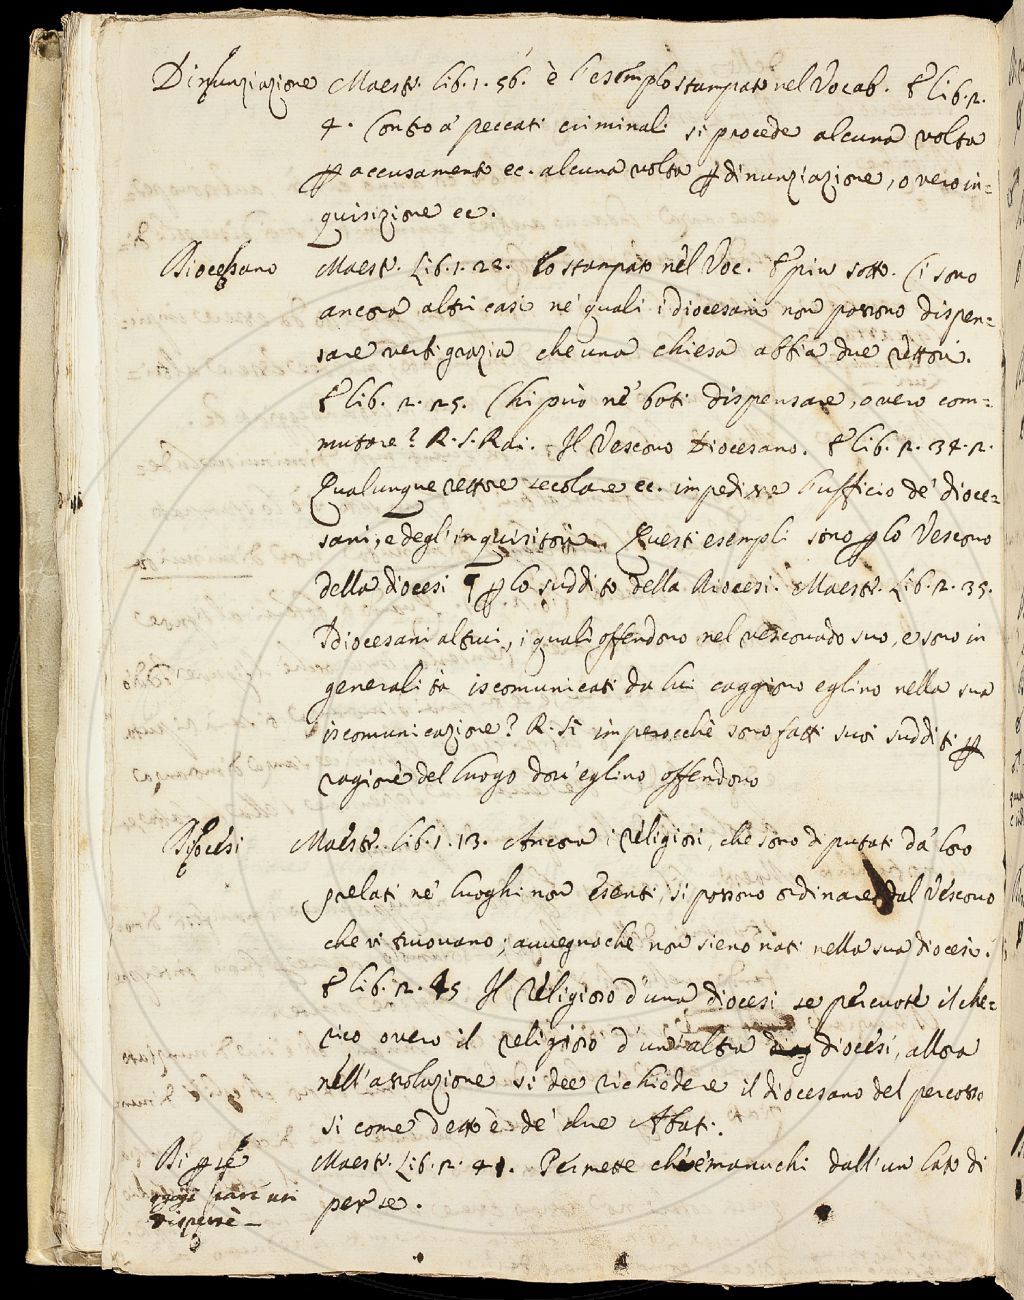 Dinunziazione Maestr. lib. 1. 56. è l'esemplo stampato nel Vocab. E lib. 2.
4. Contro a' peccati criminali si procede alcuna volta
per accusamento ec. alcuna volta per dinunziazione, o vero in=
quisizione ec.
Diocesano Maestr. Lib. 1. 28. lo stampato nel Voc. E piu sotto. Ci sono
ancora altri casi ne' quali i diocesani non possono dispen=
sare verbigrazia che una chiesa abbia due rettori.
E lib. 2. 25. Chi può ne' boti dispensare, overo com=
mutare? R. S. Rai. Il Vescovo Diocesano. E lib. 2. 34. 2.
Qualunque rettore secolare ec. impedisse l'ufficio de' dioce=
sani, e degl'inquisitori. Questi esempli sono per lo Vescovo
della diocesi per lo suddito della Diocesi. Maestr. Lib. 2. 35.
I diocesani altrui, i quali offendono nel vescovado suo, e sono in
generalità iscomunicati da lui caggiono eglino nella sua
iscomunicazione? R. Sì imperocchè sono fatti suoi sudditi per
ragione del luogo dov'eglino offendono
Diocesi Maestr. lib. 1. 13. Ancora i religiosi, che sono diputati da' loro
prelati ne' luoghi non esenti, si possono ordinare dal Vescovo
che vi truovano; avvegnachè non sieno nati nella sua diocesi.
E lib. 2. 45 Il religioso d'una diocesi se percuote il che=
rico overo il religioso d'un'altra diocesi, allora
nell'assoluzione si dee richiedere il diocesano del percosso
si come detto è de' due Abati.
Di per se Maestr. Lib. 2. 41. Permette ch'e' manuchi dall'un lato di
per se.